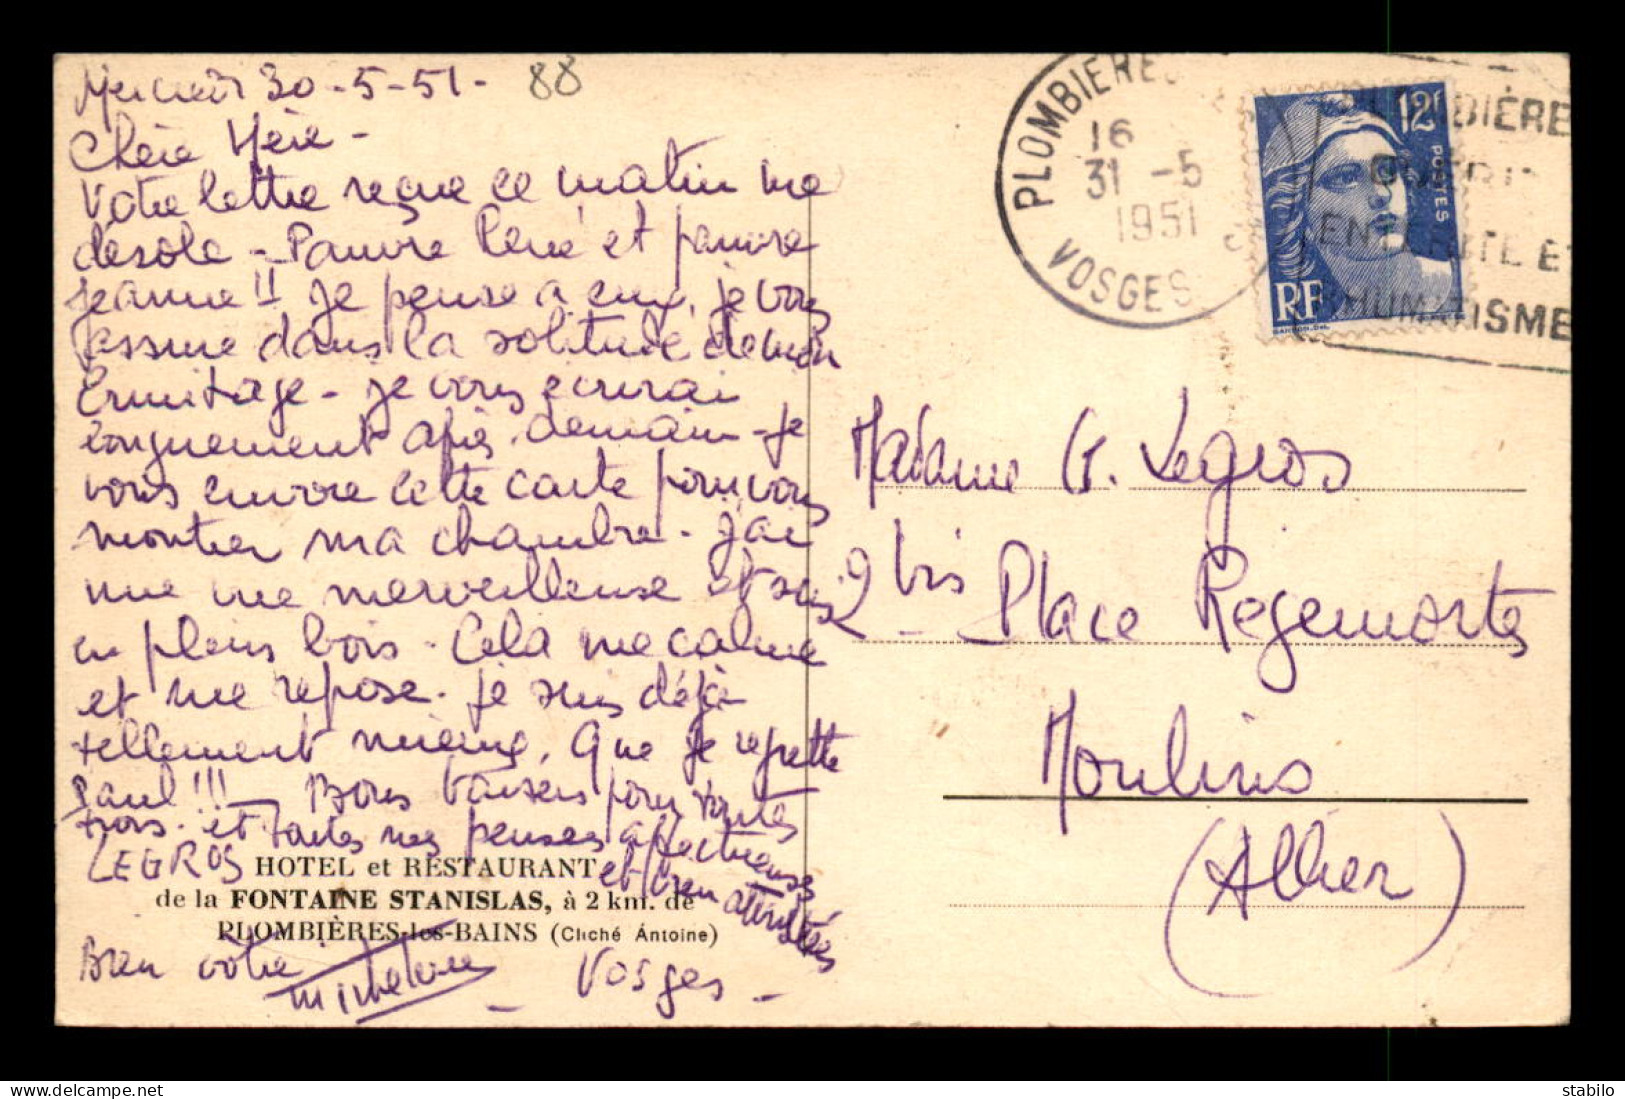 Mercredi 30-5-51-
88
Chère Mère -
Votre lettre reçue ce matin me
désole - Pauvre René et pauvre
Jeanne !! Je pense à eux, je vous
assure dans la solitude de mon
Ermitage - je vous écrirai
longuement après demain - Je
vous envoie cette carte pour vous
montrer ma chambre - J'ai
une vue merveilleuse et suis
en plein bois - Cela me calme
et me repose - je suis déjà
tellement mieux. Que je regrette
Paul !!! - Bons baisers pour toutes
trois - et toutes mes pensées affectueuses
et bien attristées
LEGROS
HOTEL et RESTAURANT
de la FONTAINE STANISLAS, à 2 km. de
PLOMBIÈRES-les-BAINS (Cliché Antoine)
Bien vôtre
- Vosges -
PLOMBIERES
16
31 -5
1951
VOSGES
12F
POSTES
RF
GANDON.DEL
PLOMBIÈRE
GUÉRIT
ENTÉRITE ET
RHUMATISME
Madame G. Legros
2 bis - Place Regemortes
Moulins
(Allier)
https://www.delcampe.net
stabilo